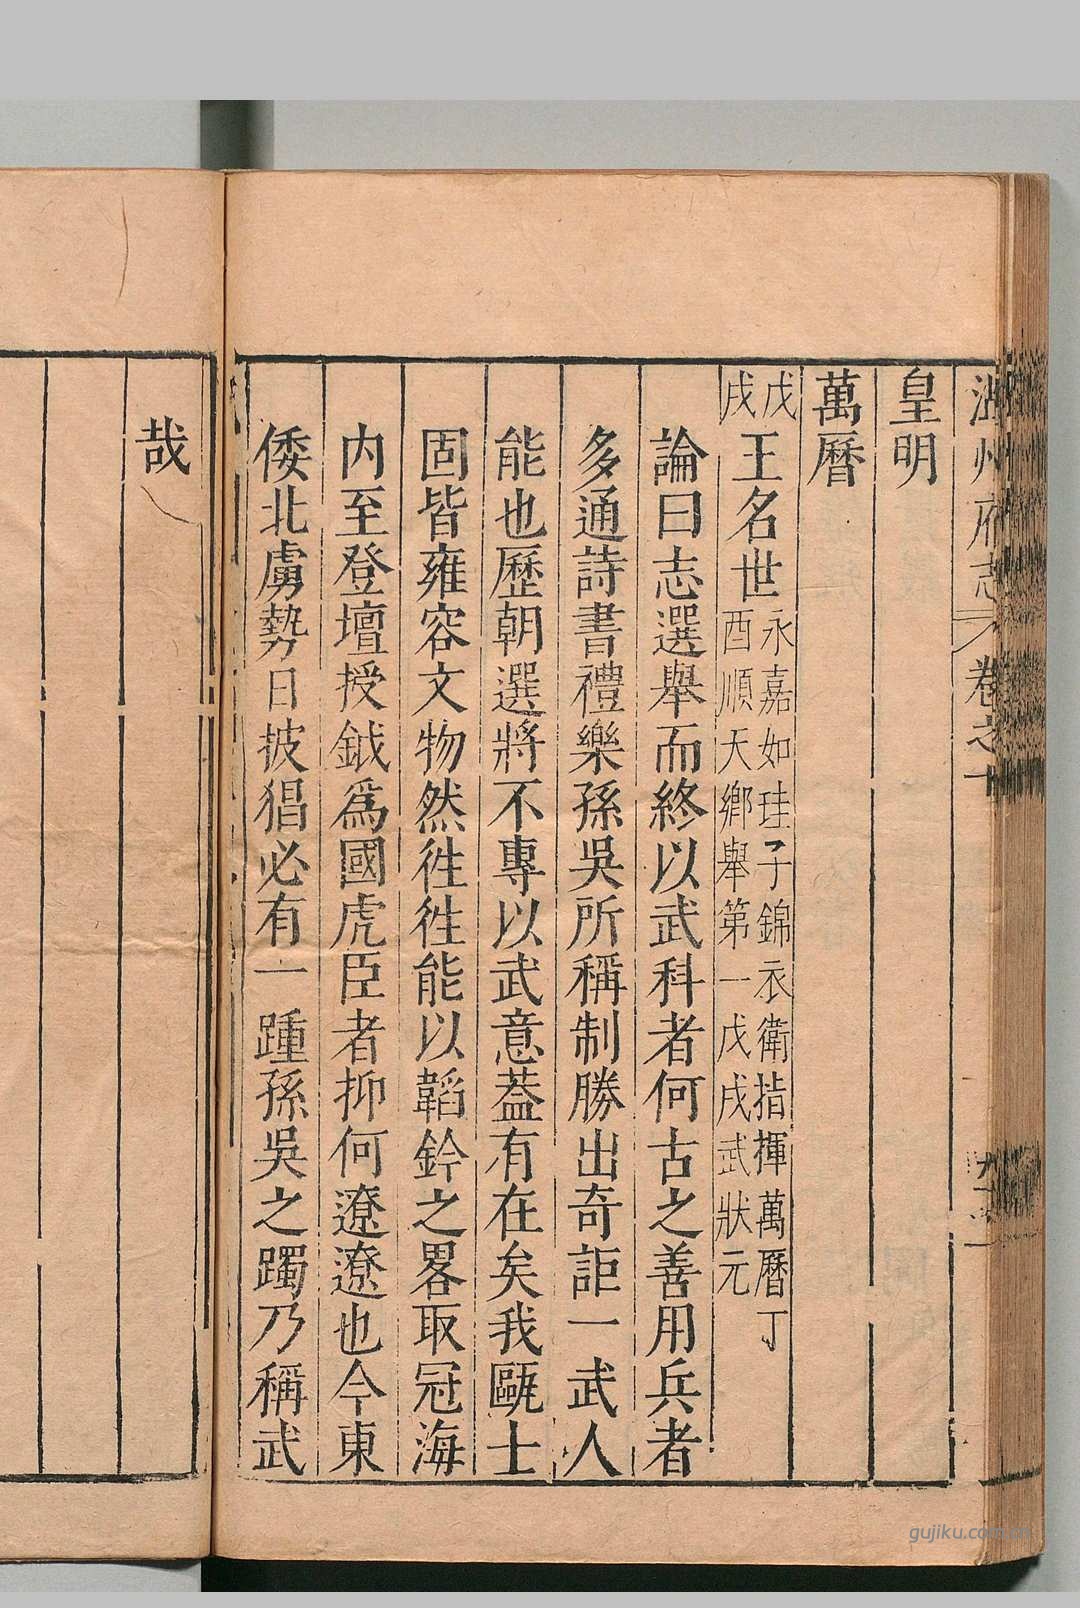 溫州府志 卷之十
皇明
萬曆
戊戌王名世永嘉如珪子錦衣衛指揮萬曆丁
酉順天鄉舉第一戊戌武狀元
論曰志選舉而終以武科者何古之善用兵者
多通詩書禮樂孫吳所稱制勝出奇詎一武人
能也歷朝選將不專以武意葢有在矣我甌士
固皆雍容文物然徃徃能以韜鈐之畧取冠海
內至登壇授鉞爲國虎臣者抑何遼遼也今東
倭北虜勢日披猖必有一踵孫吳之躅乃稱武
哉
gujiku.com